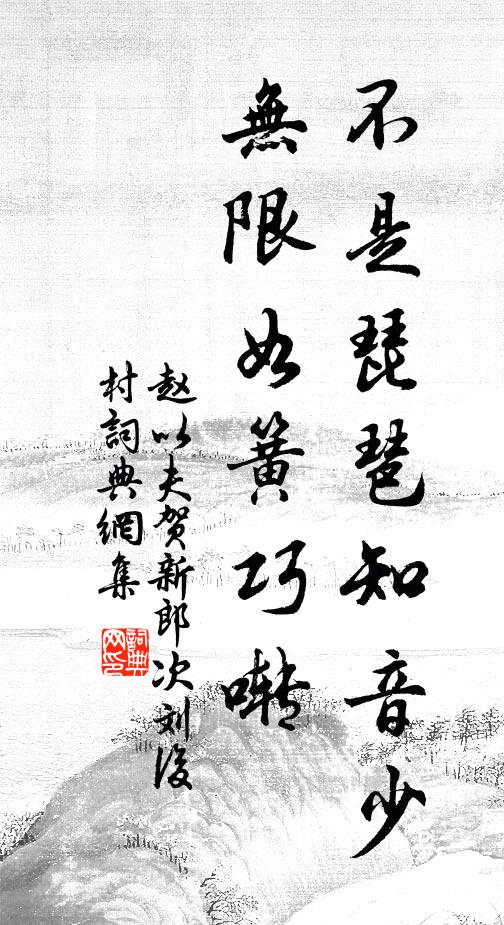 不是琵琶知音少
無限如簧巧囀
赵以夫贺新郎次刘後
村詞典網集
詞典网印